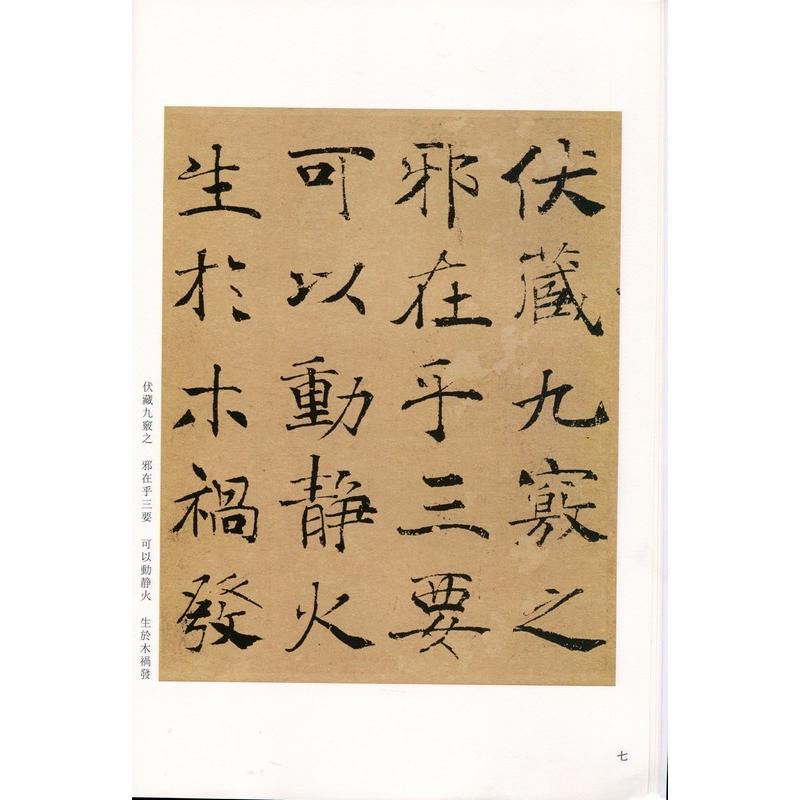 伏藏九竅之
邪在乎三要
可以動靜火
生於木禍發
伏藏九竅之　邪在乎三要　可以動静火　生於木禍發
七